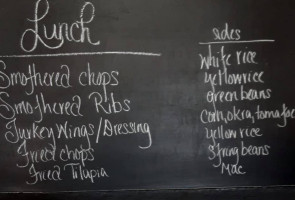 Lunch
Smothered chops
Smothered Ribs
Turkey Wings/Dressing
Fried chops
Fried Tilapia
sides
white rice
yellow rice
Green beans
Corn, okra, tomatoe
yellow rice
String beans
Mac